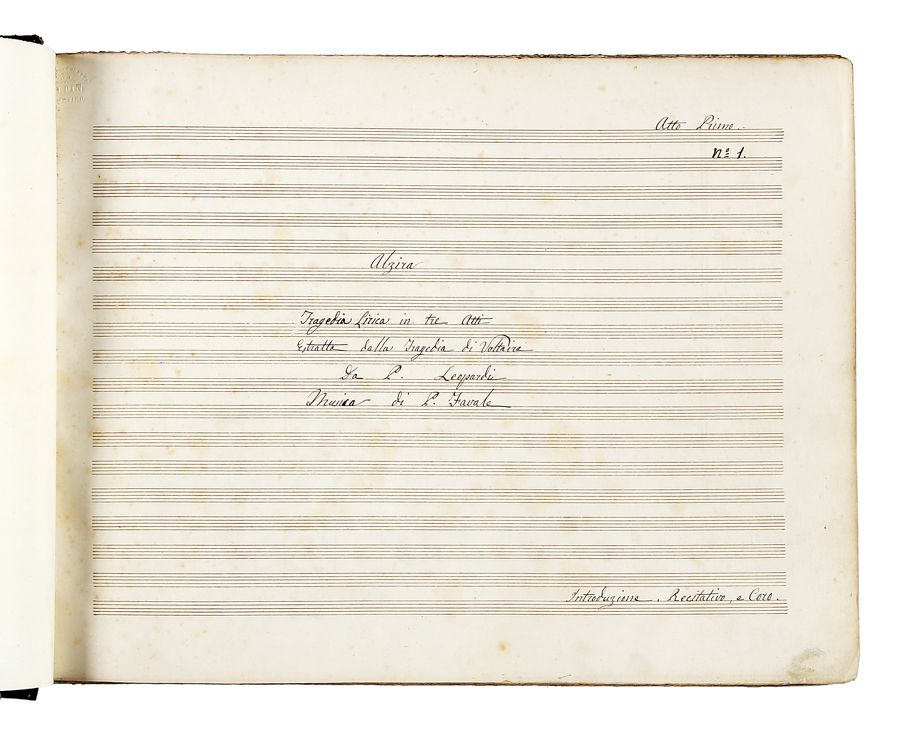 Atto Primo.
Nº 1.
Alzira
Tragedia Lirica in tre Atti
Estratta dalla Tragedia di Voltaire
Da P. Leopardi
Musica di P. Favale
Introduzione, Recitativo, e Coro.